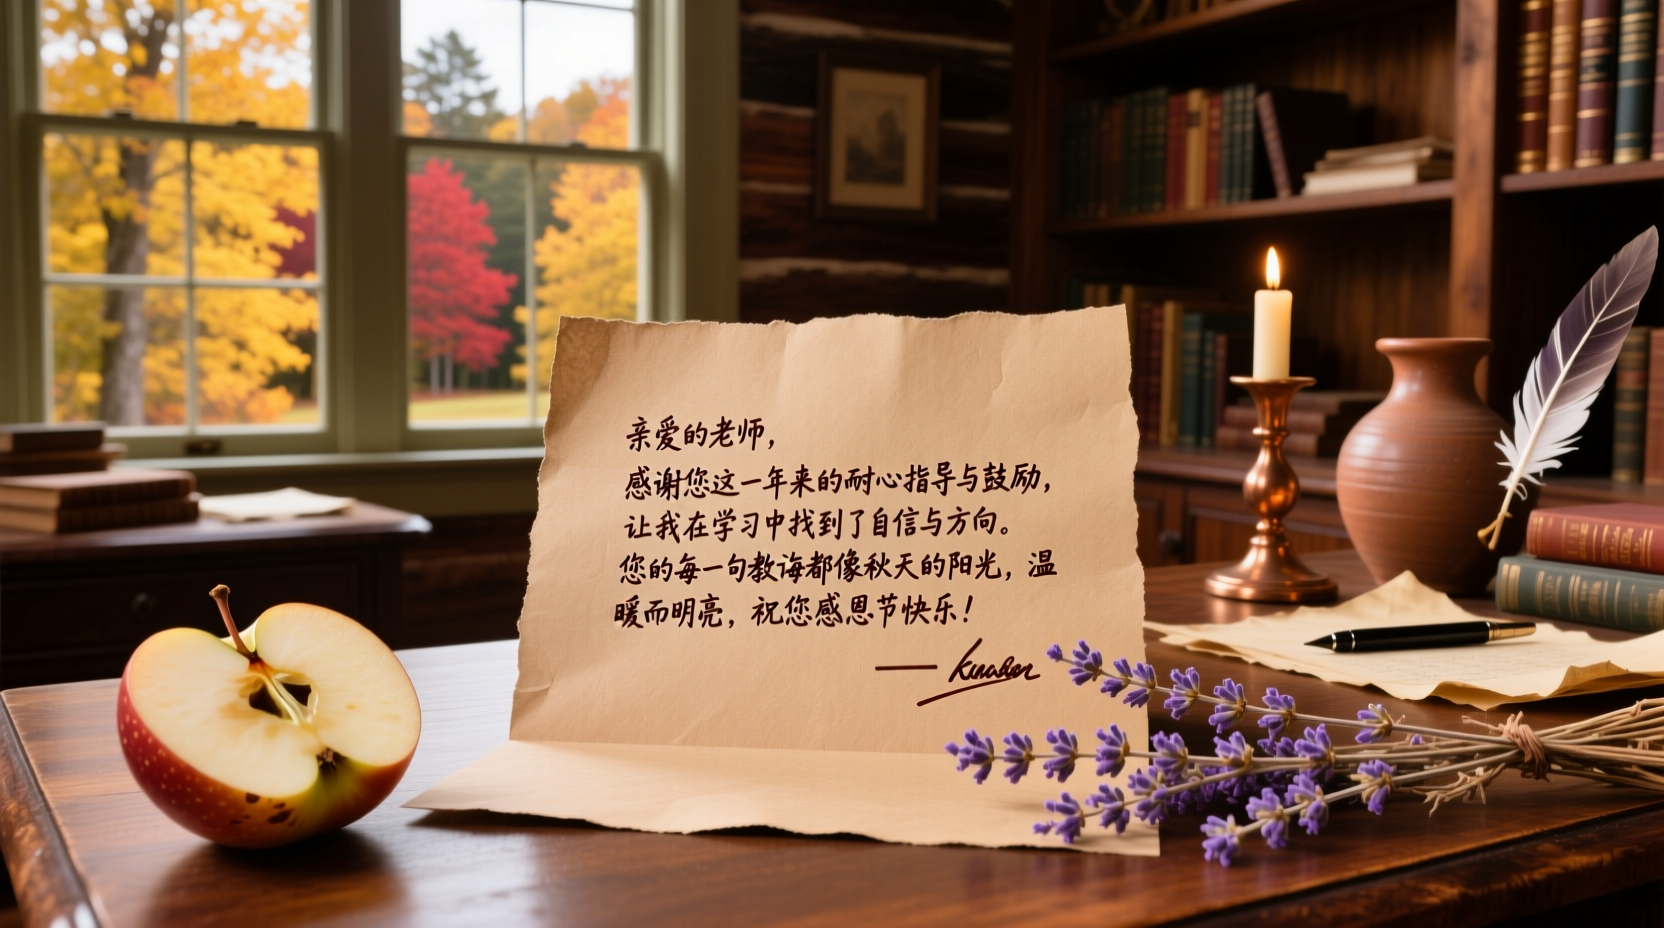 亲爱的老师，
感谢您这一年来的耐心指导与鼓励，
让我在学习中找到了自信与方向。
您的每一句教诲都像秋天的阳光，温
暖而明亮，祝您感恩节快乐！